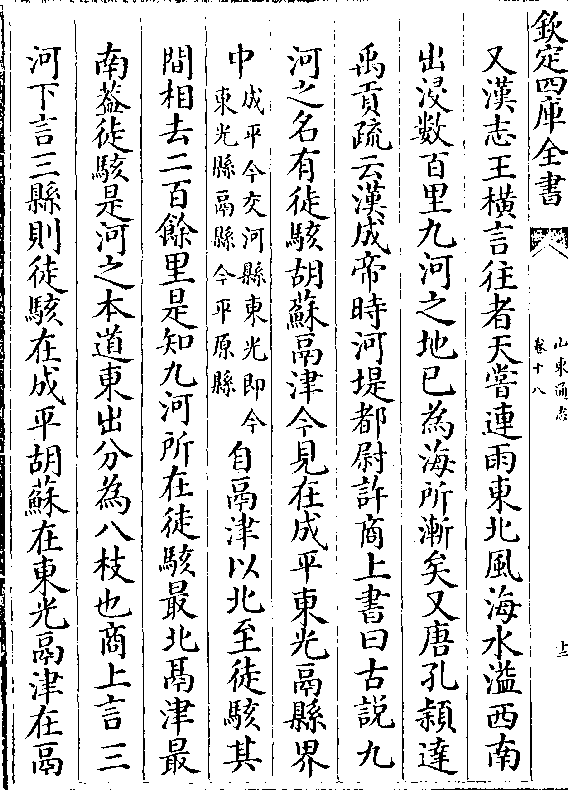 欽定四庫全書
山東通志
卷十八
十三
又漢志王橫言往者天嘗連雨東北風海水溢西南
出浸数百里九河之地已為海所漸矣又唐孔穎達
禹貢疏云漢成帝時河堤都尉許商上書曰古説九
河之名有徒駭胡蘇鬲津今見在成平東光鬲縣界
中成平今交河縣東光即今東光縣鬲縣今平原縣自鬲津以北至徒駭其
間相去二百餘里是知九河所在徒駭最北鬲津最
南葢徒駭是河之本道東出分為八枝也商上言三
河下言三縣則徒駭在成平胡蘇在東光鬲津在鬲